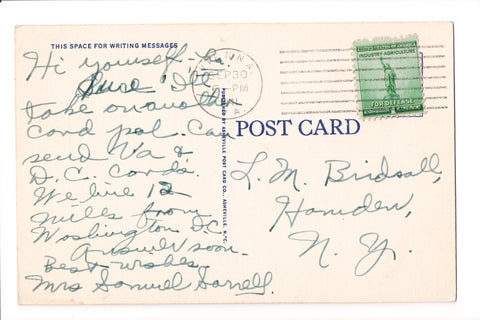 THIS SPACE FOR WRITING MESSAGES
Hi yourself - ha.
Sure I'll
take on another
card pal. Can
send Va &
D.C. cards.
We live 12
miles from
Washington D.C.
Answer soon.
Best wishes
Mrs Samuel
SEP 30
PM
UNITED STATES OF AMERICA
INDUSTRY AGRICULTURE
FOR DEFENSE
POST CARD
ASHEVILLE POST CARD CO., ASHEVILLE, N.C.
L. M. Birdsall,
Hamden,
N. Y.